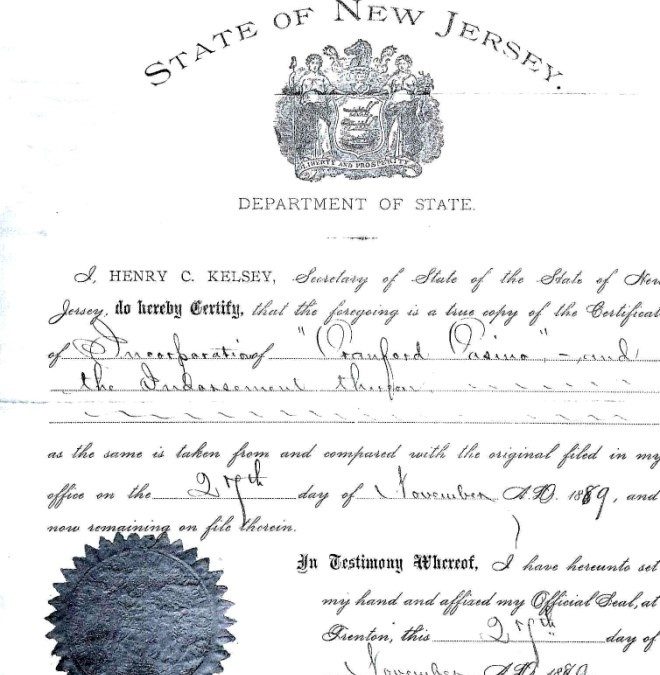 STATE OF NEW JERSEY.
LIBERTY AND PROSPERITY
DEPARTMENT OF STATE.
I, HENRY C. KELSEY, Secretary of State of the State of New
Jersey, do hereby Certify, that the foregoing is a true copy of the Certificat
of Incorporation of "Cranford Casino", - and
the Indorsement thereon
as the same is taken from and compared with the original filed in my
office on the 27th day of November A.D. 1889, and
now remaining on file therein.
In Testimony Whereof, I have hereunto set
my hand and affixed my Official Seal, at
Trenton, this 27th day of
November A.D. 1889